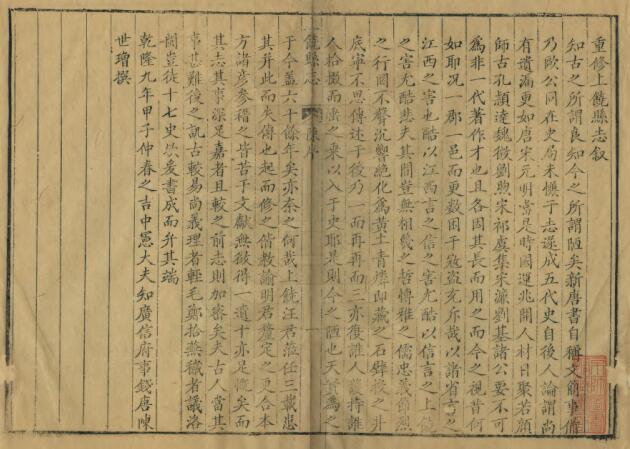 重修上饒縣志敘
知古之所謂良知今之所謂陋矣新唐書自稱文簡事備
乃歐公同在史局未慊于志遂成五代史自後人論謂尚
有遺漏更如唐宋元明當是時國運兆開人材日聚若顏
師古孔頴達魏徵劉煦宋祁虞集宋濂劉基諸公要不可
為非一代著作才也且各因其長而用之而今之視昔何
如耶况一郡一邑而更数困于寇盗充斥哉以諸省言之
江西之害也酷以江西言之信之害尤酷以信言之上饒
之害尤酷悲夫其間豈無相幾之哲博雅之儒忠義節烈
之行罔不聲沉響絶化為黄土青燐即藏之石壁後之井
底寧不思傳述于後乃一而再再而三亦復誰人護持誰
人拾掇而彙之乗以入于史耶是則今之陋也天實為之
饒縣志 陳序
于今盖六十餘年矣亦奈之何哉上饒汪君蒞任三載患
其并此而失傳也起而修之偕教諭明君釐定之更合本
方諸彦參稽之皆苦于文獻無徵得一遺十亦足慨矣而
其志其事深足嘉者且較之前志則加密矣夫古人當其
事甚難後之訊古較易尚義理者輕毛鄭拾蕪穢者議洛
閩豈徒十七史以爰書成而弁其端
乾隆九年甲子仲春之吉中憲大夫知廣信府事錢唐陳
世璔撰